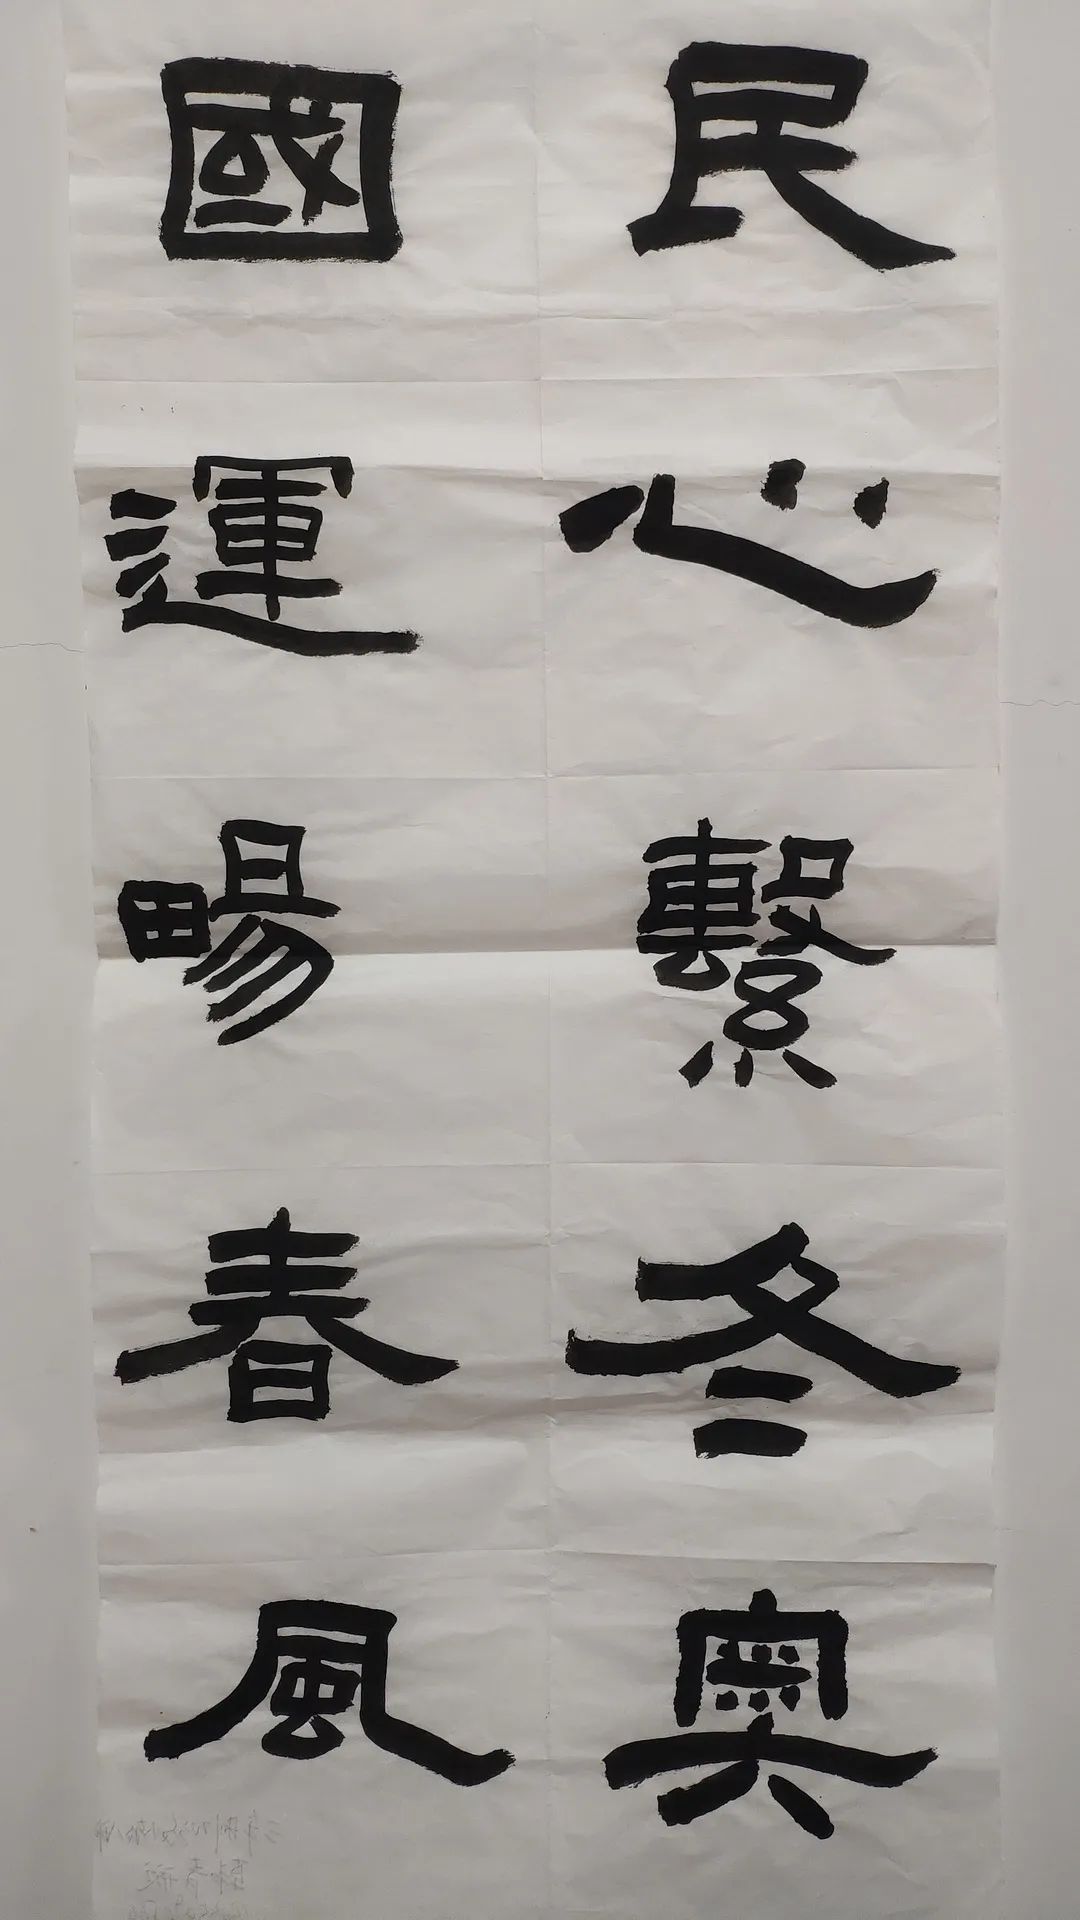 民心繫冬奧
國運暢春風